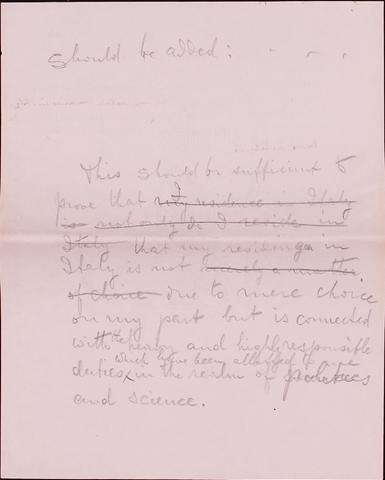 should be added: - - -
This should be sufficient to
prove that my residence in Italy
is not only do I reside in
Italy that my residence in
Italy is not merely a matter
of choice due to mere choice
on my part but is connected
with the heavy and highly responsible
which have been allotted to me
duties in the realm of
and science.